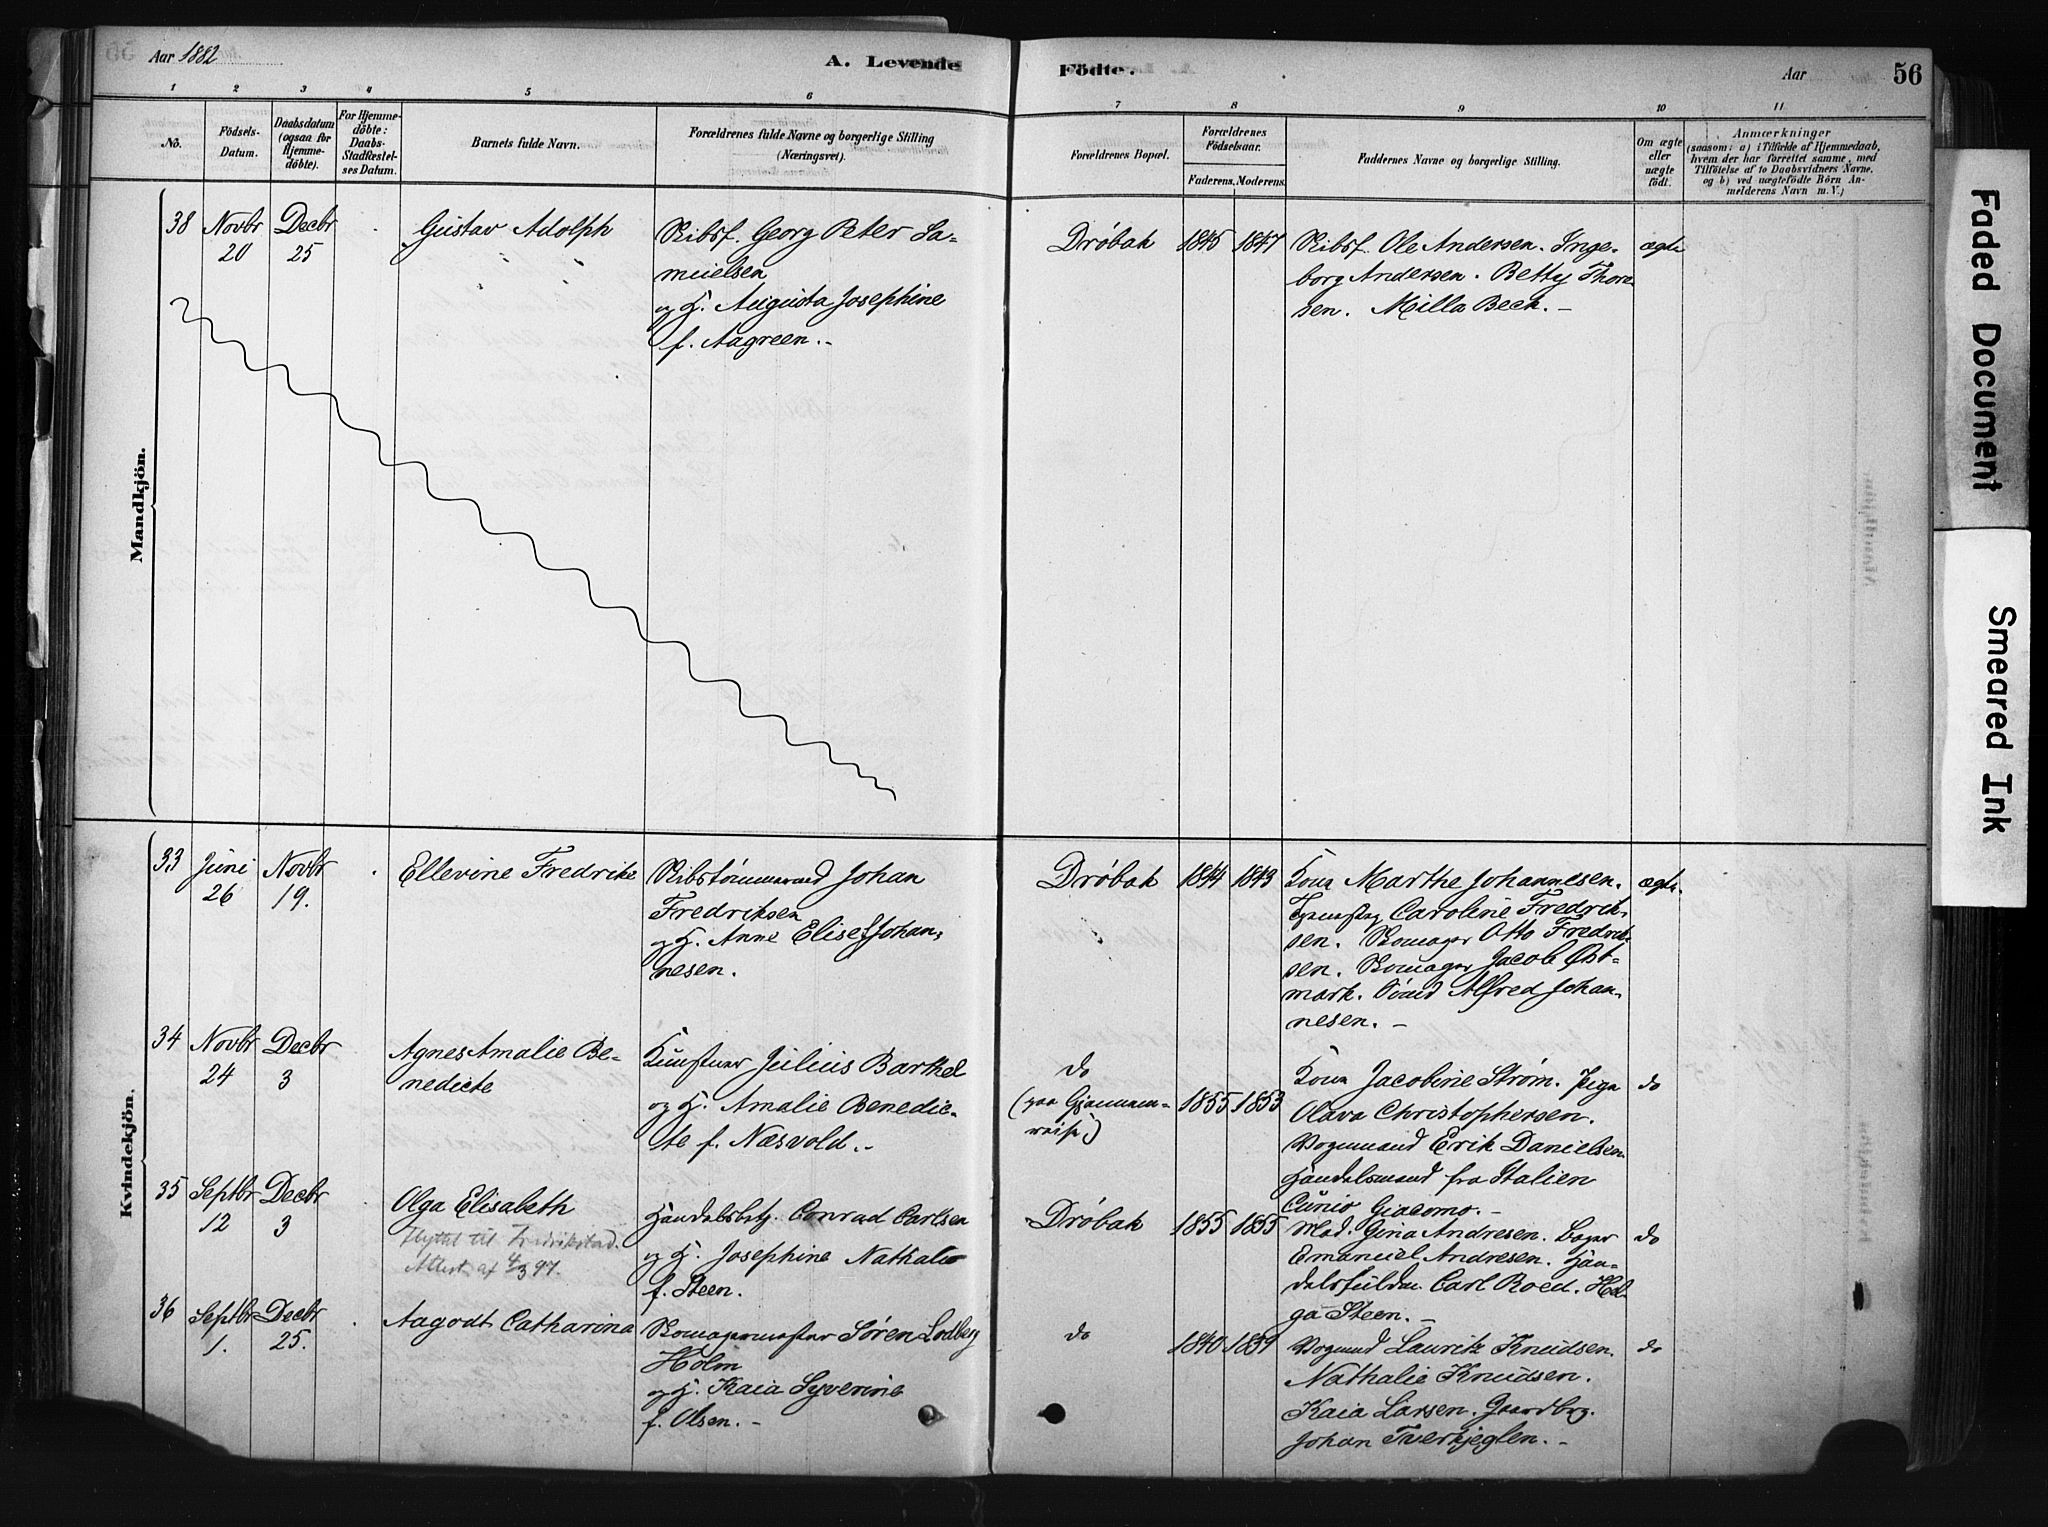 Aar 1882
A. Levende
Födte.
Aar
56
1 2 3 4 5 6 7 8 9 10 11
No.
Födsels-
Datum.
Daabsdatum
(ogsaa for
Hjemme-
döbte).
For Hjemme-
döbte:
Daabs-
Stadfæstel-
ses Datum.
Barnets fulde Navn.
Forældrenes fulde Navne og borgerlige Stilling
(Næringsvei).
Forældrenes Bopæl.
Forældrenes
Födselsaar.
Faderens. Moderens.
Faddernes Navne og borgerlige Stilling.
Om ægte
eller
uægte
födt.
Anmærkninger
(saasom: a) i Tilfælde af Hjemmedaab,
hvem der har forrettet samme, med
Tilföielse af to Daabsvidners Navne,
og b) ved uægtefödte Börn An-
melderens Navn m. V.)
Mandkjön.
38 Novbr 20 Decbr 25 Gustav Adolph
Skibsf. Georg Peter Sa-
muelsen
og H. Augusta Josephine
f. Aagreen.
Drøbak 1845 1847
Skibsf. Ole Andersen. Inge-
borg Andersen. Betty Thore-
sen. Milla Beck. -
ægte
Kvindekjön.
33 Juni 26 Novbr 19. Ellevine Fredrike
Skibstømmermand Johan
Fredriksen
og H. Anne Elise f. Johan-
nesen.
Drøbak 1844 1843
Kona Marthe Johannesen.
Caroline Fredrik-
sen. Skomager Otto Fredrik-
sen. Skomager Jacob Øst-
mark. Sömd Alfred Johan-
nesen. -
ægte
34 Novbr 24 Decbr 3 Agnes Amalie Be-
nedicte
Julius Barthel
og H. Amalie Benedic-
te f. Næsvold. -
do
(paa Gjennem-
reise)
1855 1853
Kona Jacobine Strøm. Pige
Olava Christophersen.
Vognmand Erik Danielsen.
Handelsmand fra Italien
Cunio Giacomo. -
do
35 Septbr 12 Decbr 3 Olga Elisabeth
Flyttet til Fredrikstad.
Attest af 4/3 97.
Handelsbetj. Conrad Carlsen
og H. Josephine Nathalie
f. Steen.
Drøbak 1855 1855
Mad. Gina Andresen. Bager
Emanuel Andresen. Han-
delsfuldm. Carl Roed. Hel-
ga Steen. -
do
36 Septbr 1. Decbr 25. Aagodt Catharina
Skomagermester Søren Lodberg
Holm
og H. Kaia Syverine
f. Olsen. -
do 1840 1839
Vognmd Lauritz Knudsen.
Nathalie Knudsen.
Kaia Larsen. Gaardbrg.
Johan Tverkjeglen. -
do
Faded Document
Smeared Ink